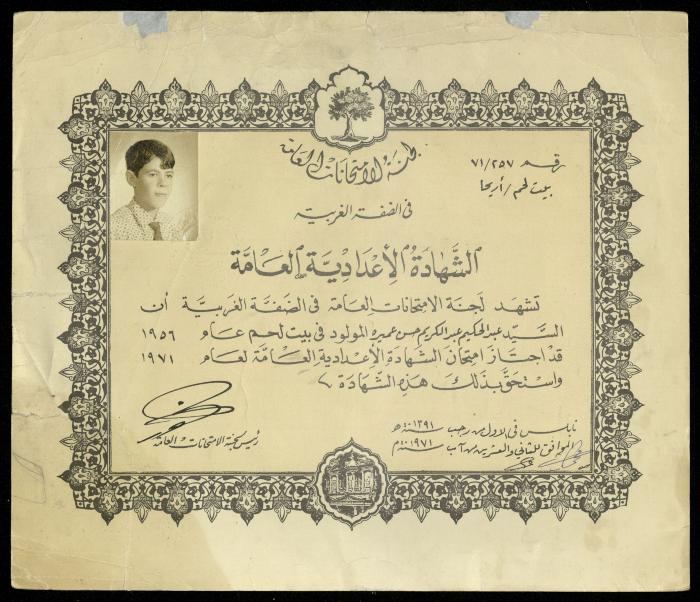 لجنة الامتحانات العامة
رقم ٧١/٢٥٧
بيت لحم/أريحا
في الضفة الغربية
الشهادة الإعدادية العامة
تشهد لجنة الامتحانات العامة في الضفة الغربية أن
السيد عبدالحكيم عبدالكريم حسن عميره المولود في بيت لحم عام ١٩٥٦
قد اجتاز امتحان الشهادة الإعدادية العامة لعام ١٩٧١
واستحق بذلك هذه الشهادة
نابلس في الاول من رجب سنة ١٣٩١ هـ
الموافق للثاني والعشرين من آب سنة ١٩٧١ م
رئيس لجنة الامتحانات العامة